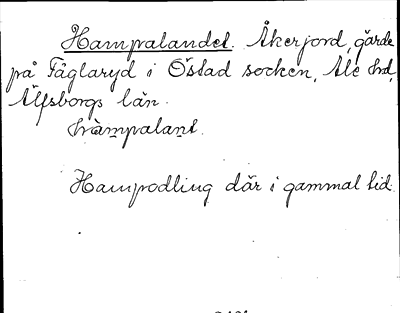 Hampalandet. Åkerjord, gärde
på Fåglaryd i Östad socken, Ale hrd,
Älfsborgs län.
hàmpalant.
Hampodling där i gammal tid.